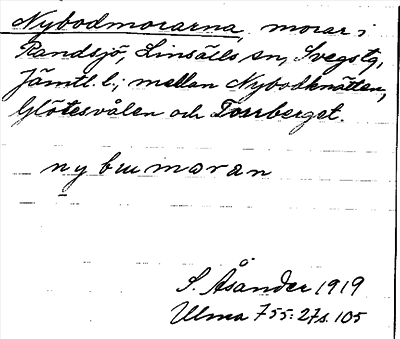 Nybodmorarna, morar i
Randsjö, Linsälls sn, Svegs tg,
Jämtl. l.; mellan Nybodknätten,
Glötesvålen och Torrberget.
nybumoran
S. Åsander 1919
Ulma 755:27 s. 105